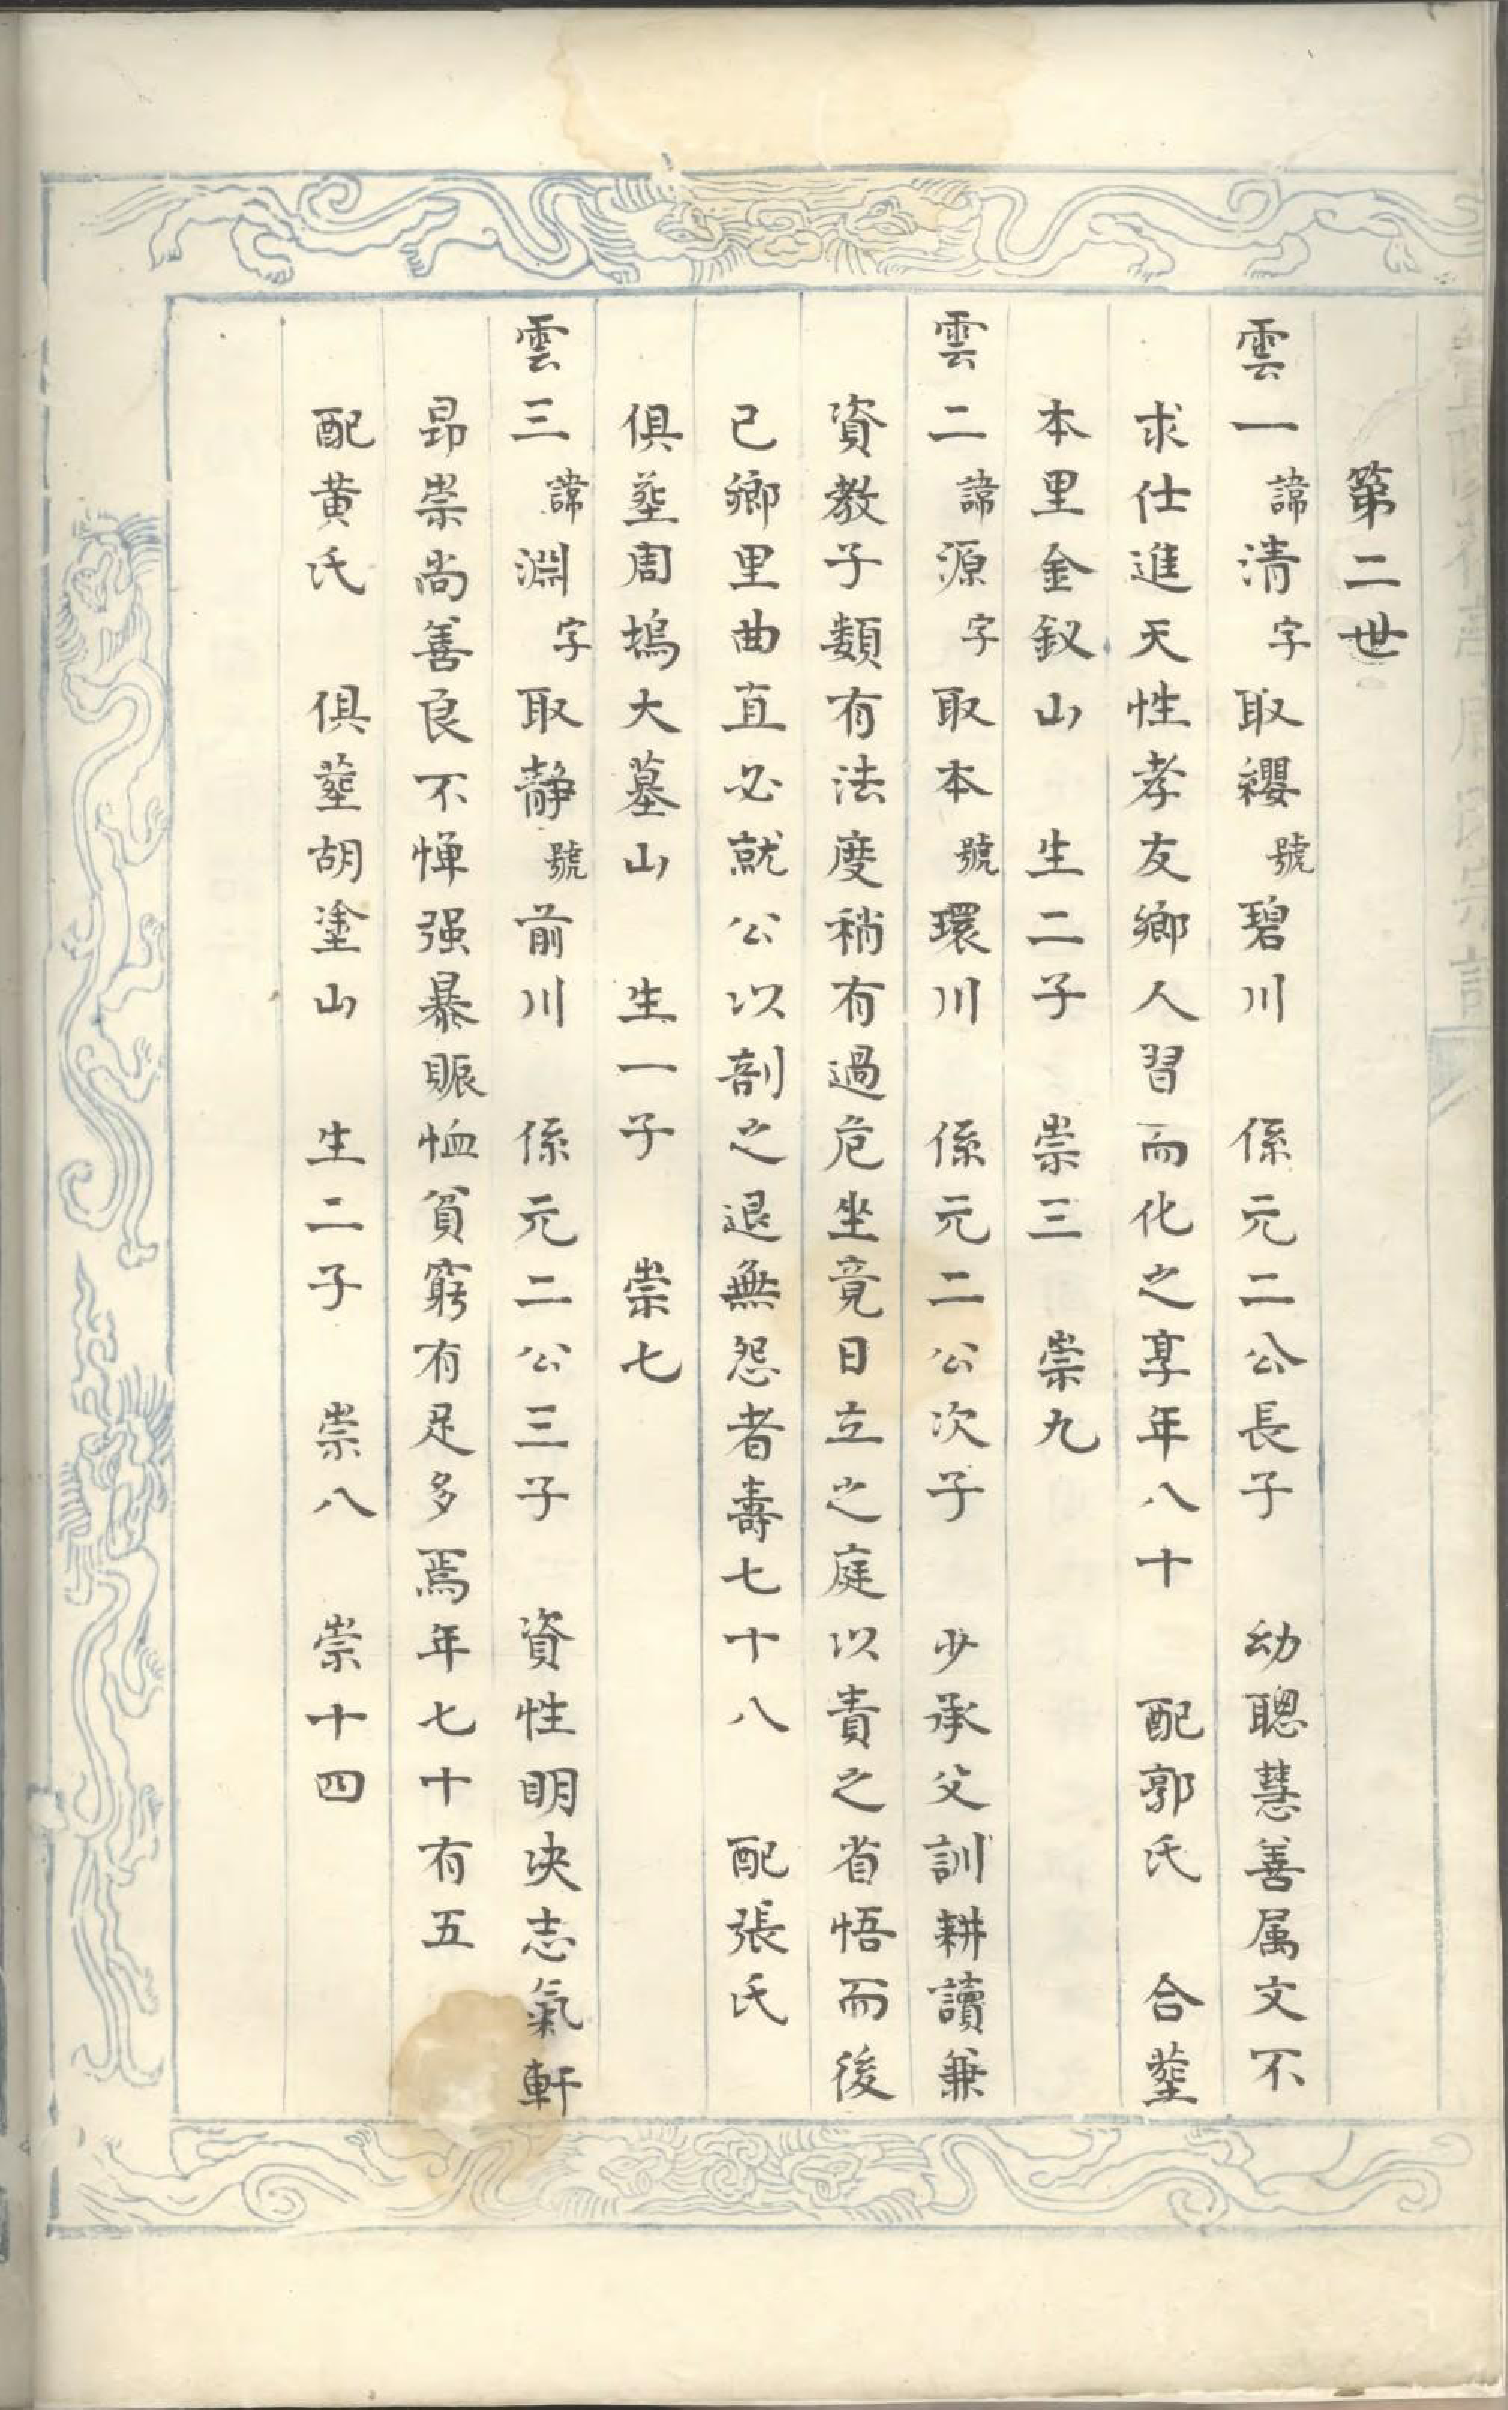 第二世
雲一諱清字取纓號碧川　係元二公長子　幼聰慧善属文不
求仕進天性孝友鄉人習而化之享年八十　配郭氏　合塟
本里金釵山　生二子　崇三　崇九
雲二諱源字取本號環川　係元二公次子　少承父訓耕讀兼
資教子類有法度稍有過危坐竟日立之庭以責之省悟而後
已鄉里曲直必就公以剖之退無怨者壽七十八　配張氏
俱塟周塢大墓山　生一子　崇七
雲三諱淵字取静號前川　係元二公三子　資性明决志氣軒
昂崇尚善良不惮强暴賑恤貧窮有足多焉年七十有五
配黄氏　俱塟胡塗山　生二子　崇八　崇十四